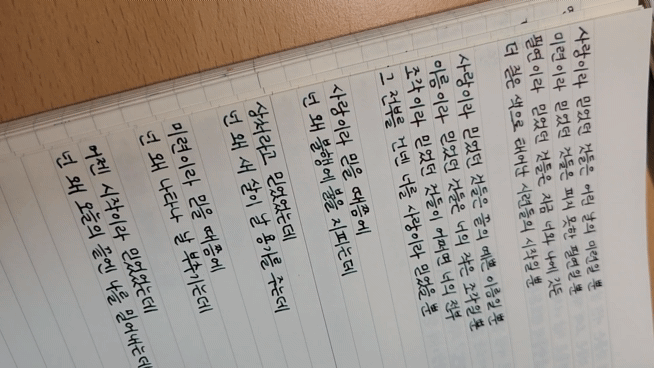 사랑이라 믿었던 것들은 어린 날의 미련일 뿐
미련이라 믿었던 것들은 피지 못한 필연일 뿐
필연이라 믿었던 것들은 지금 너와 나에 깃든
더 짙은 색으로 태어난 시련들의 시작일 뿐
사랑이라 믿었던 것들은 끝의 예쁜 이름일 뿐
이름이라 믿었던 것들은 너의 작은 조각일 뿐
조각이라 믿었던 것들이 어쩌면 너의 전부
그 전부를 건네 너를 사랑이라 믿었을 뿐
사랑이라 믿을 때쯤에
넌 왜 불행에 불을 지피는데
상처라고 믿었었는데
넌 왜 새 살이 날 용기를 주는데
미련이라 믿을 때쯤에
넌 왜 나타나 날 부추기는데
어쩐 시작이라 믿었었는데
넌 왜 오늘의 끝엔 나를 밀어내는데